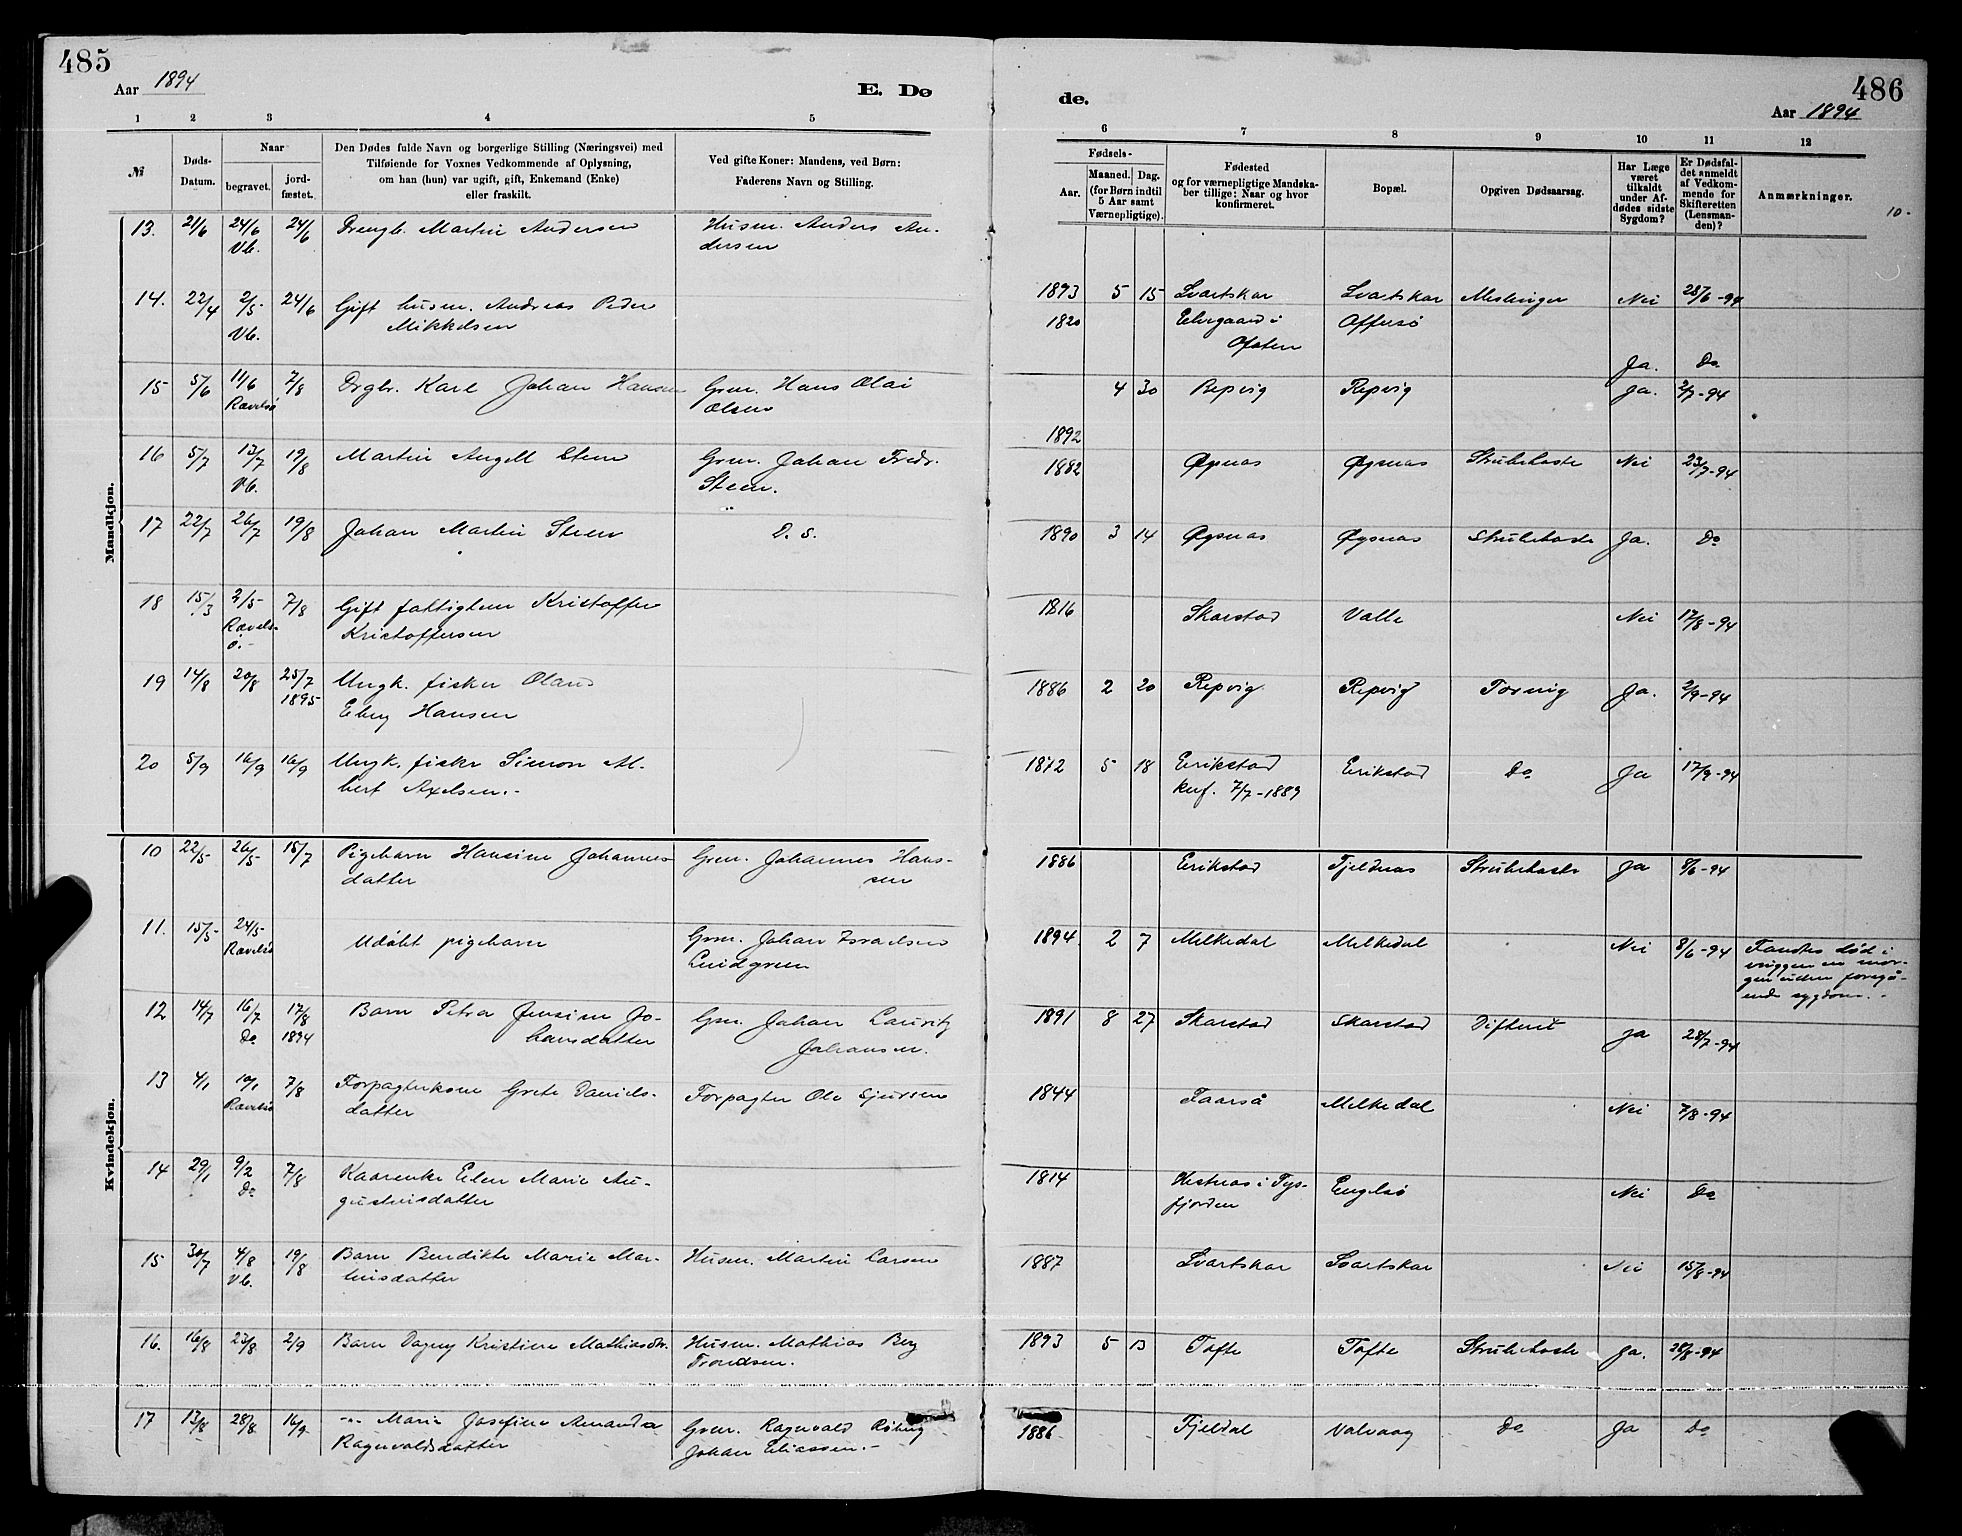 485
Aar 1894
E. Dø
1 2 3 4 5
№
Døds-
Datum.
Naar
begravet.
jord-
fæstet.
Den Dødes fulde Navn og borgerlige Stilling (Næringsvei) med
Tilføiende for Voxnes Vedkommende af Oplysning,
om han (hun) var ugift, gift, Enkemand (Enke)
eller fraskilt.
Ved gifte Koner: Mandens, ved Børn:
Faderens Navn og Stilling.
Mandkjøn.
13. 21/6 24/6 24/6 Drengb. Martin Andersen Husm. Anders An-
Vb. dersen
14. 22/4 2/5 24/6 Gift husm. Andreas Peder
Vb. Mikkelsen
15 5/6 11/6 7/8 Drgb. Karl Johan Hansen Grm. Hans Olai
Ravelsø Olsen
16 5/7 13/7 19/8 Martin Angell Steen Grm. Johan Fredr.
Vb. Steen.
17 22/7 26/7 19/8 Johan Martin Steen D. S.
18 15/3 2/5 7/8 Gift fattiglem Kristoffer
Ravels-
ø.- Kristoffersen
19 14/8 20/8 25/7 Ungk. fisker Olaus
1895 Eberg Hansen
20 5/9 16/9 16/9 Ungk. fisker Simon Al-
bert Axelsen.-
Kvindekjøn.
10 22/5 26/5 15/7 Pigebarn Hansine Johannes Grm. Johannes Hans-
datter sen
11. 15/5 24/5 Udøbt pigebarn Grm. Johan Israelsen
Ravelsø Lindgreen
12 14/7 16/7 17/8 Barn Petra Jensine Jo- Grm. Johan Lauritz
Do 1894 hansdatter Johansen.
13 4/1 10/1 7/8 Forpagterkone Grete Daniels- Forpagter Ole Sjursen
Ravelsø datter
14 29/1 9/2 7/8 Kaarenke Elen Marie Au-
Do gustinsdatter
15 30/7 4/8 19/8 Barn Bendikte Marie Mar- Husm. Martin Larsen
Vb. tinsdatter
16. 16/8 23/8 2/9 Barn Dagny Kristine Mathiasdtr. Husm. Mathias Berg
Trondsen.
17 13/8 28/8 16/9 -"- Marie Josefine Amanda Grm. Ragnvald Røberg
Ragnvaldsdatter Johan Eliassen.-
486
de.
Aar 1894
6 7 8 9 10 11 12
Fødsels-
Aar.
Maaned. Dag.
(for Børn indtil
5 Aar samt
Værnepligtige).
Fødested
og for værnepligtige Mandska-
ber tillige: Naar og hvor
konfirmeret.
Bopæl.
Opgiven Dødsaarsag.
Har Læge
været
tilkaldt
under Af-
dødes sidste
Sygdom?
Er Dødsfal-
det anmeldt
af Vedkom-
mende for
Skifteretten
(Lensman-
den)?
Anmærkninger.
10-
1893 5 15 Svartskar Svartskar Meslinger Nei 28/6-94
1820 Elvegaard i Offersø
Ofoten
Ja. Do
4 30 Repvig Repvig Ja. 2/7-94
1892
1882 Øysnas Øysnas Strubehoste Nei 23/7-94
1890 3 14 Øysnas Øysnas Strubehoste Ja. Do
1816 Skarstad Valle Nei 17/8-94
1886 2 20 Repvig Repvig Ja. 2/9-94
1872 5 18 Erikstad Erikstad Do Ja 17/9-94
konf. 7/7-1889
1886 Erikstad Fjeldnas Strubehoste Ja 8/6-94
1894. 2 7 Melkedal Melkedal Nei 8/6-94 Fandtes død i
vuggen en mor-
gen uden foregå-
ende sygdom.-
1891 8 27 Skarstad Skarstad Difterit Ja 28/7-94
1844 Taarså Melkedal Nei 7/8-94
1814 Hestnas i Tys- Engelsø Nei Do
fjorden
1887 Svartskar Svartskar Nei 15/8-94
1893 5 13 Tofte Tofte Strubehoste Ja. 28/8-94
1886 Fjeldal Valvaag Do Ja Do